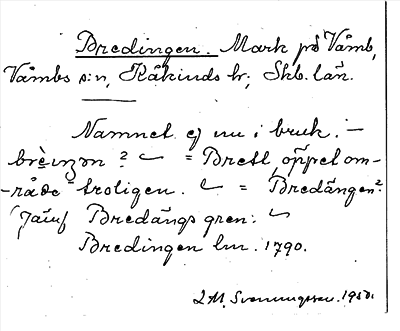 Bredingen. Mark på Våmb,
Våmbs s:n, Kåkinds hr; Skb. län.
Namnet ej nu i bruk. –
= Brett, öppet om-
-råde troligen. = Bredängen?
(Jämf Bredängs gren:
Bredingen lm. 1790.